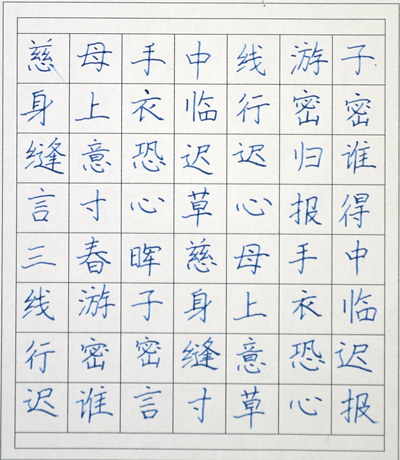 慈母手中线游子
身上衣临行密密
缝意恐迟迟归谁
言寸心草心报得
三春晖慈母手中
线游子身上衣临
行密密缝意恐迟
迟谁言寸草心报